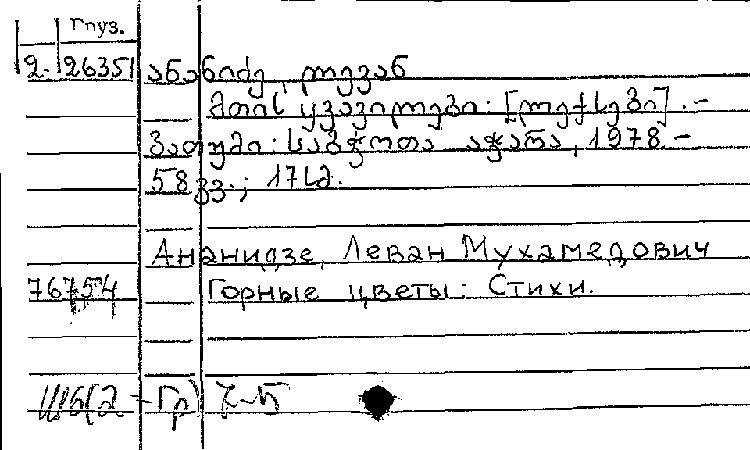 Груз.
2-26351 ანანიძე, ლევან
მთის ყვავილები: [ლექსები]. -
ბათუმი: საბჭოთა აჭარა, 1978. -
58 გვ.; 17სმ.
Ананидзе, Леван Мухамедович
76754 Горные цветы: Стихи.
Ш6(2-Гр) 7-5